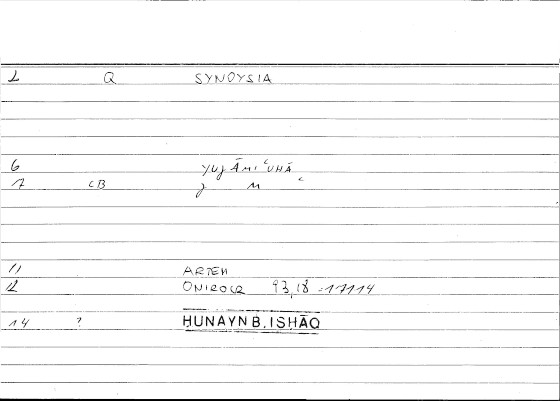 1 Q SYNOYSIA
6 YUǦĀMIʿUHĀ
7 CB ǧ M ʿ
11 ARTEM
12 ONIROCR 93,18 = 171,14
14 ? HUNAYN B. ISHĀQ